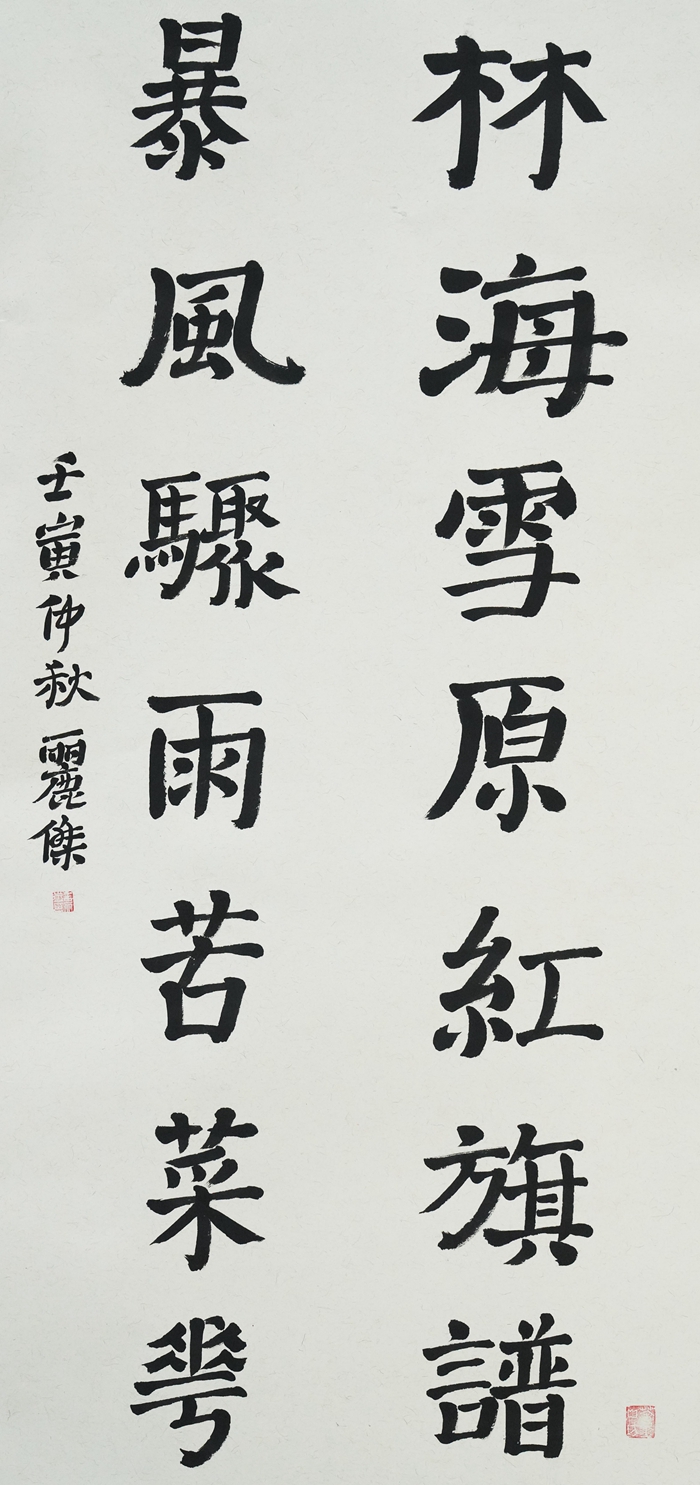 林海雪原紅旗譜
暴風驟雨苦菜𠌶
壬寅仲秋麗傑